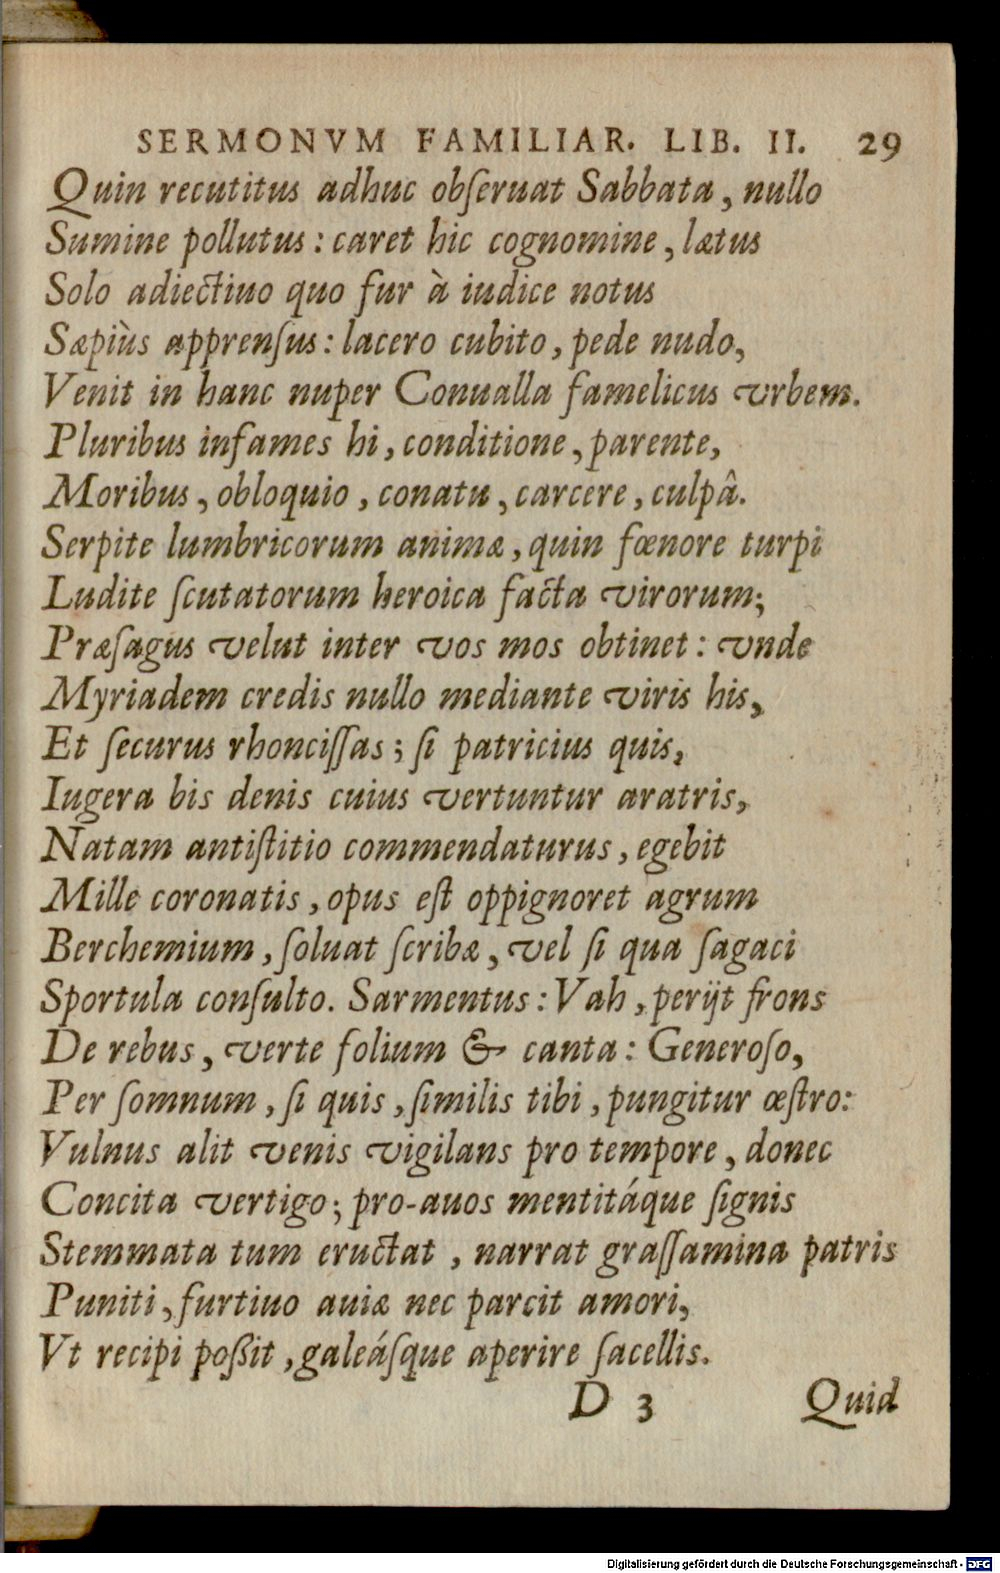 SERMONVM FAMILIAR. LIB. II. 29
Quin recutitus adhuc obſeruat Sabbata, nullo
Sumine pollutus: caret hic cognomine, lætus
Solo adiectiuo quo fur à iudice notus
Sæpiùs apprenſus: lacero cubito, pede nudo,
Venit in hanc nuper Conualla famelicus vrbem.
Pluribus infames hi, conditione, parente,
Moribus, obloquio, conatu, carcere, culpâ.
Serpite lumbricorum animæ, quin fœnore turpi
Ludite ſcutatorum heroica facta virorum;
Præſagus velut inter vos mos obtinet: vnde
Myriadem credis nullo mediante viris his,
Et ſecurus rhonciſſas; ſi patricius quis,
Iugera bis denis cuius vertuntur aratris,
Natam antiſtitio commendaturus, egebit
Mille coronatis, opus eſt oppignoret agrum
Berchemium, ſoluat ſcribæ, vel ſi qua ſagaci
Sportula conſulto. Sarmentus: Vah, perijt frons
De rebus, verte folium & canta: Generoſo,
Per ſomnum, ſi quis, ſimilis tibi, pungitur œſtro:
Vulnus alit venis vigilans pro tempore, donec
Concita vertigo; pro-auos mentitáque ſignis
Stemmata tum eructat, narrat graſſamina patris
Puniti, furtiuo auiæ nec parcit amori,
Vt recipi poßit, galeáſque aperire ſacellis.
D 3 Quid
Digitalisierung gefördert durch die Deutsche Forschungsgemeinschaft - DFG